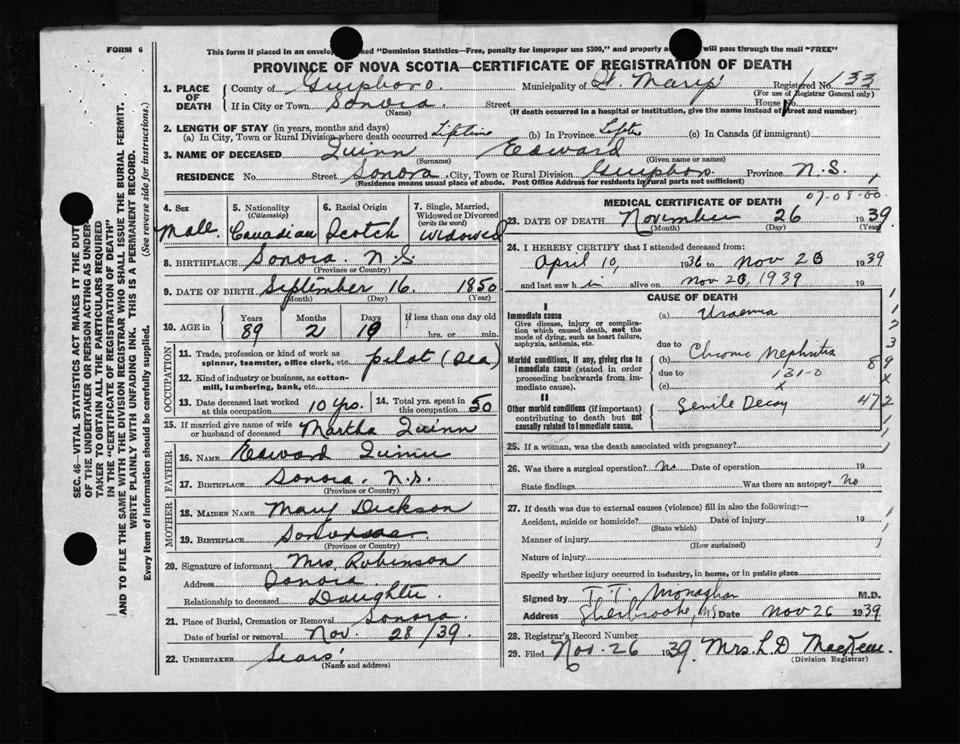 FORM 6
This form if placed in an envelop ked "Dominion Statistics—Free, penalty for improper use $300," and properly a will pass through the mail "FREE"
PROVINCE OF NOVA SCOTIA—CERTIFICATE OF REGISTRATION OF DEATH
1. PLACE OF DEATH
County of Guysboro. Municipality of St. Mary's Registered No. 133
(For use of Registrar General only)
If in City or Town Sonora. Street House No.
(Name) (If death occurred in a hospital or institution, give the name instead of street and number)
2. LENGTH OF STAY (in years, months and days)
(a) In City, Town or Rural Division where death occurred Lifetime (b) In Province Lifetime (c) In Canada (if immigrant)
3. NAME OF DECEASED Quinn Edward
(Surname) (Given name or names)
RESIDENCE No. Street Sonora, City, Town or Rural Division Guysboro. Province N.S.
(Residence means usual place of abode. Post Office Address for residents in rural parts not sufficient)
07-08-00
4. Sex Male.
5. Nationality (Citizenship) Canadian
6. Racial Origin Scotch
7. Single, Married, Widowed or Divorced (write the word) Widowed
8. BIRTHPLACE Sonora N.S.
(Province or Country)
9. DATE OF BIRTH September 16. 1850
(Month) (Day) (Year)
10. AGE in Years Months Days If less than one day old
89 2 10 hrs. or min.
OCCUPATION
11. Trade, profession or kind of work as spinner, teamster, office clerk, etc. pilot (Sea)
12. Kind of industry or business, as cotton-mill, lumbering, bank, etc.
13. Date deceased last worked at this occupation 10 yrs.
14. Total yrs. spent in this occupation 50
15. If married give name of wife or husband of deceased Martha Quinn
FATHER
16. NAME Edward Quinn
17. BIRTHPLACE Sonora. N.S.
(Province or Country)
MOTHER
18. MAIDEN NAME Mary Dickson
19. BIRTHPLACE
(Province or Country)
20. Signature of informant Mrs Robinson
Address Sonora.
Relationship to deceased Daughter.
21. Place of Burial, Cremation or Removal Sonora.
Date of burial or removal Nov. 28/39.
22. UNDERTAKER Sears'
(Name and address)
MEDICAL CERTIFICATE OF DEATH
23. DATE OF DEATH November 26 1939
(Month) (Day) (Year)
24. I HEREBY CERTIFY that I attended deceased from:
April 10, 1936 to Nov 1939
and last saw him alive on Nov 1939 19
CAUSE OF DEATH
I
Immediate cause (a) Uraemia
Give disease, injury or complication which caused death, not the mode of dying, such as heart failure, asphyxia, asthenia, etc.
due to
Morbid conditions, if any, giving rise to immediate cause (stated in order proceeding backwards from immediate cause).
(b) Chronic Nephritis
due to 131-0
(c) x
II
Other morbid conditions (if important) contributing to death but not causally related to immediate cause.
Senile Decay
25. If a woman, was the death associated with pregnancy?
26. Was there a surgical operation? No Date of operation 19
State findings Was there an autopsy? No
27. If death was due to external causes (violence) fill in also the following:—
Accident, suicide or homicide? Date of injury 19
(State which)
Manner of injury
(How sustained)
Nature of injury
Specify whether injury occurred in industry, in home, or in public place
Signed by T. T. Monaghan M.D.
Address Sherbrooke, NS Date Nov 26 1939
28. Registrar's Record Number
29. Filed Nov. 26 1939 Mrs. L D MacKeen.
(Division Registrar)
SEC. 46—VITAL STATISTICS ACT MAKES IT THE DUTY
OF THE UNDERTAKER OR PERSON ACTING AS UNDER-
TAKER TO OBTAIN ALL THE PARTICULARS REQUIRED
IN THE "CERTIFICATE OF REGISTRATION OF DEATH"
AND TO FILE THE SAME WITH THE DIVISION REGISTRAR WHO SHALL ISSUE THE BURIAL PERMIT.
WRITE PLAINLY WITH UNFADING INK. THIS IS A PERMANENT RECORD.
Every item of information should be carefully supplied. (See reverse side for instructions.)